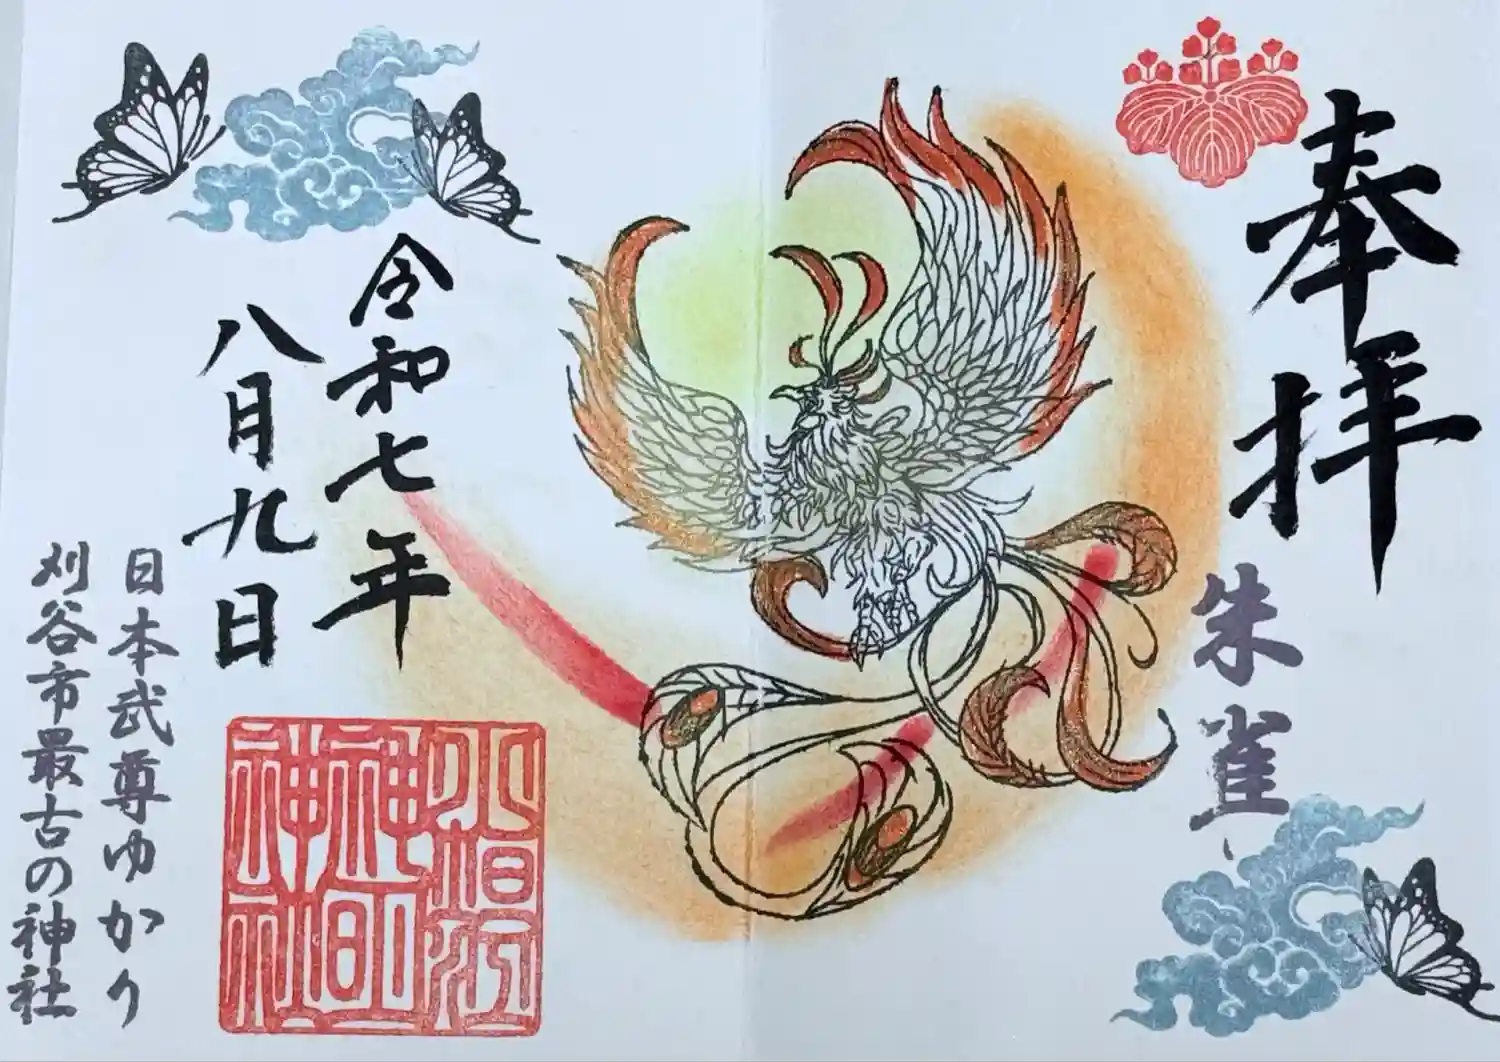 奉拝
朱雀
令和七年
八月九日
小垣江
神明
神社
日本武尊ゆかり
刈谷市最古の神社